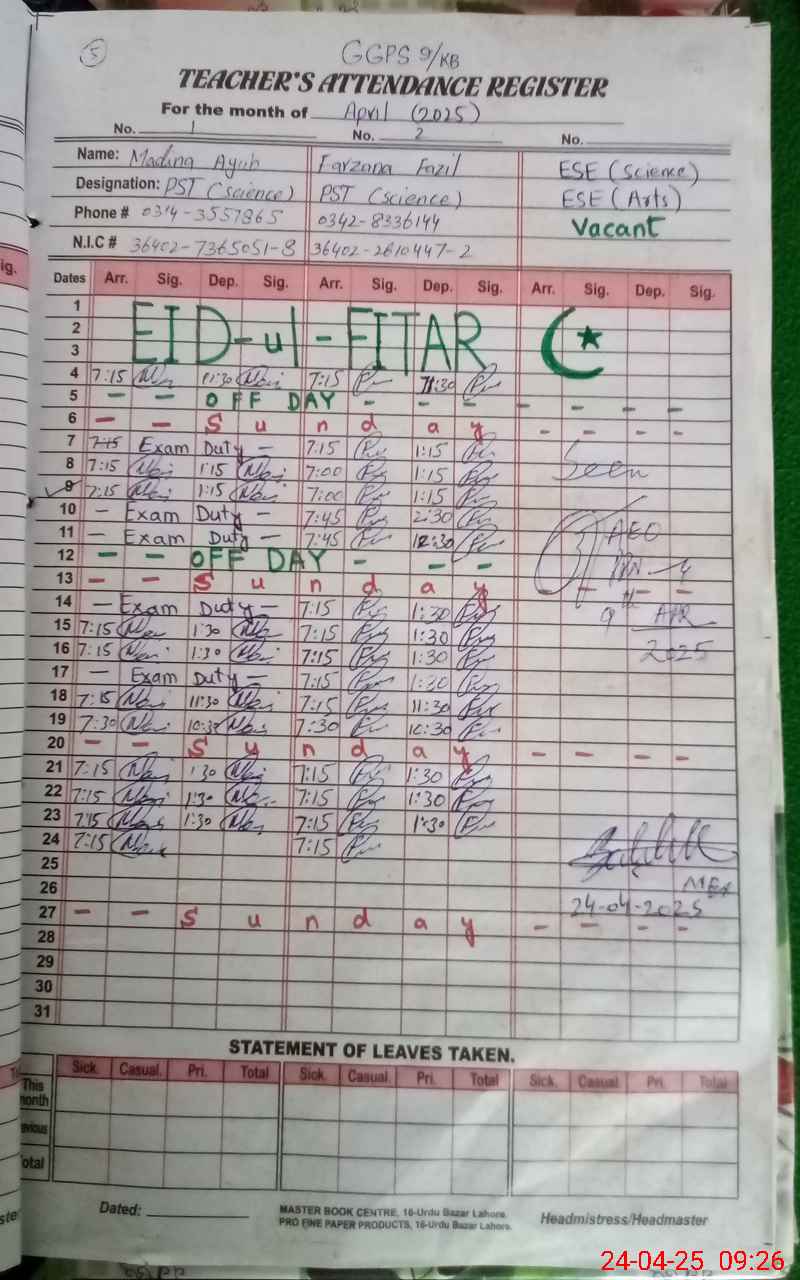 5
GGPS 9/KB
TEACHER'S ATTENDANCE REGISTER
For the month of April (2025)
No. 1 No. 2 No.
Name: Madina Ayub Farzana Fazil ESE (Science)
Designation: PST (science) PST (science) ESE (Arts)
Phone # 0314-3557865 0342-8336144 Vacant
N.I.C # 36402-7365051-8 36402-2610447-2
Dates Arr. Sig. Dep. Sig. Arr. Sig. Dep. Sig. Arr. Sig. Dep. Sig.
1
2 EID-ul-FITAR
3
4 7:15 11:30 7:15 11:30
5 - - OFF DAY - - - - - - -
6 - - Sunday - - - -
7 7:15 Exam Duty - 7:15 1:15
8 7:15 1:15 7:00 1:15 Seen
9 7:15 1:15 7:00 1:15
10 - Exam Duty - 7:45 2:30
11 - Exam Duty - 7:45 12:30 AEO
12 - - OFF DAY - - -
13 - - Sunday - - - -
14 - Exam Duty - 7:15 1:30 9th APR
15 7:15 1:30 7:15 1:30
16 7:15 1:30 7:15 1:30 2025
17 - Exam Duty - 7:15 1:30
18 7:15 11:30 7:15 11:30
19 7:30 10:30 7:30 10:30
20 - - Sunday - - - -
21 7:15 1:30 7:15 1:30
22 7:15 1:30 7:15 1:30
23 7:15 1:30 7:15 1:30
24 7:15 7:15
25
26 MEA
27 - - Sunday - - - - 24-04-2025
28
29
30
31
STATEMENT OF LEAVES TAKEN.
Sick. Casual. Pri. Total Sick. Casual. Pri. Total Sick. Casual Pri. Total
This month
Total
Dated: MASTER BOOK CENTRE, 16-Urdu Bazar Lahore. Headmistress/Headmaster
PRO FINE PAPER PRODUCTS, 16-Urdu Bazar Lahore.
24-04-25 09:26